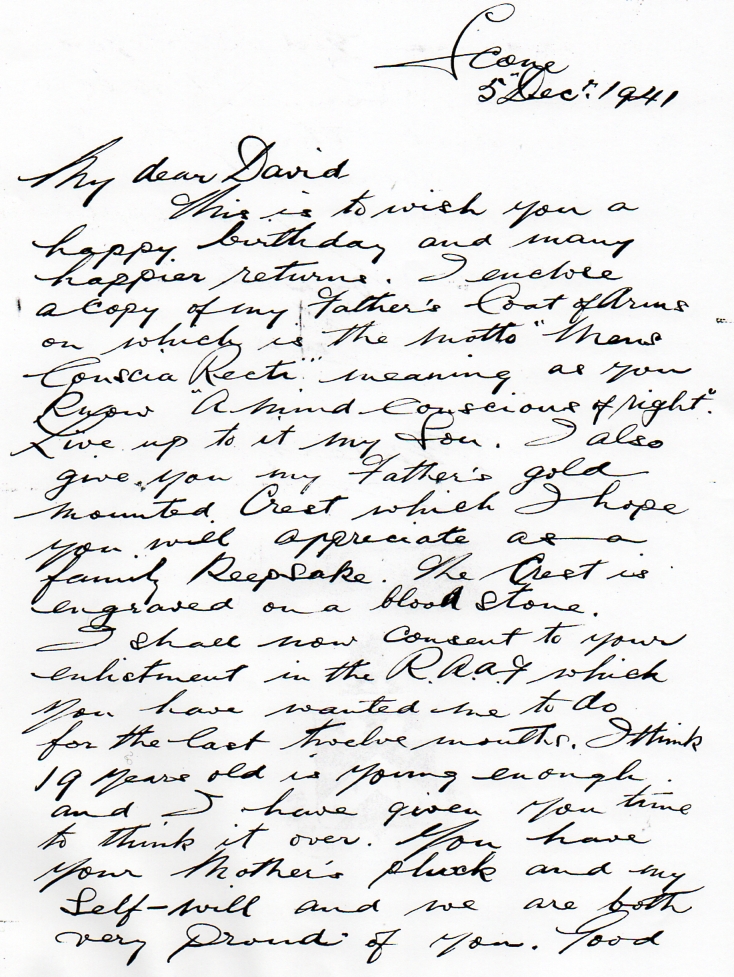 Scone
5" Decr. 1941
My dear David
This is to wish you a
happy birthday and many
happier returns. I enclose
a copy of my Father's Coat of Arms
on which is the motto "Mens
Conscia Recti" meaning as you
know "A mind Conscious of right".
Live up to it my Son. I also
give you my Father's gold
mounted Crest which I hope
you will appreciate as a
family Keepsake. The Crest is
engraved on a blood stone.
I shall now consent to your
enlistment in the R.A.A.F which
you have wanted me to do
for the last twelve months. I think
19 years old is young enough
and I have given you time
to think it over. You have
your Mother's pluck and my
Self-will and we are both
very proud of you. Good